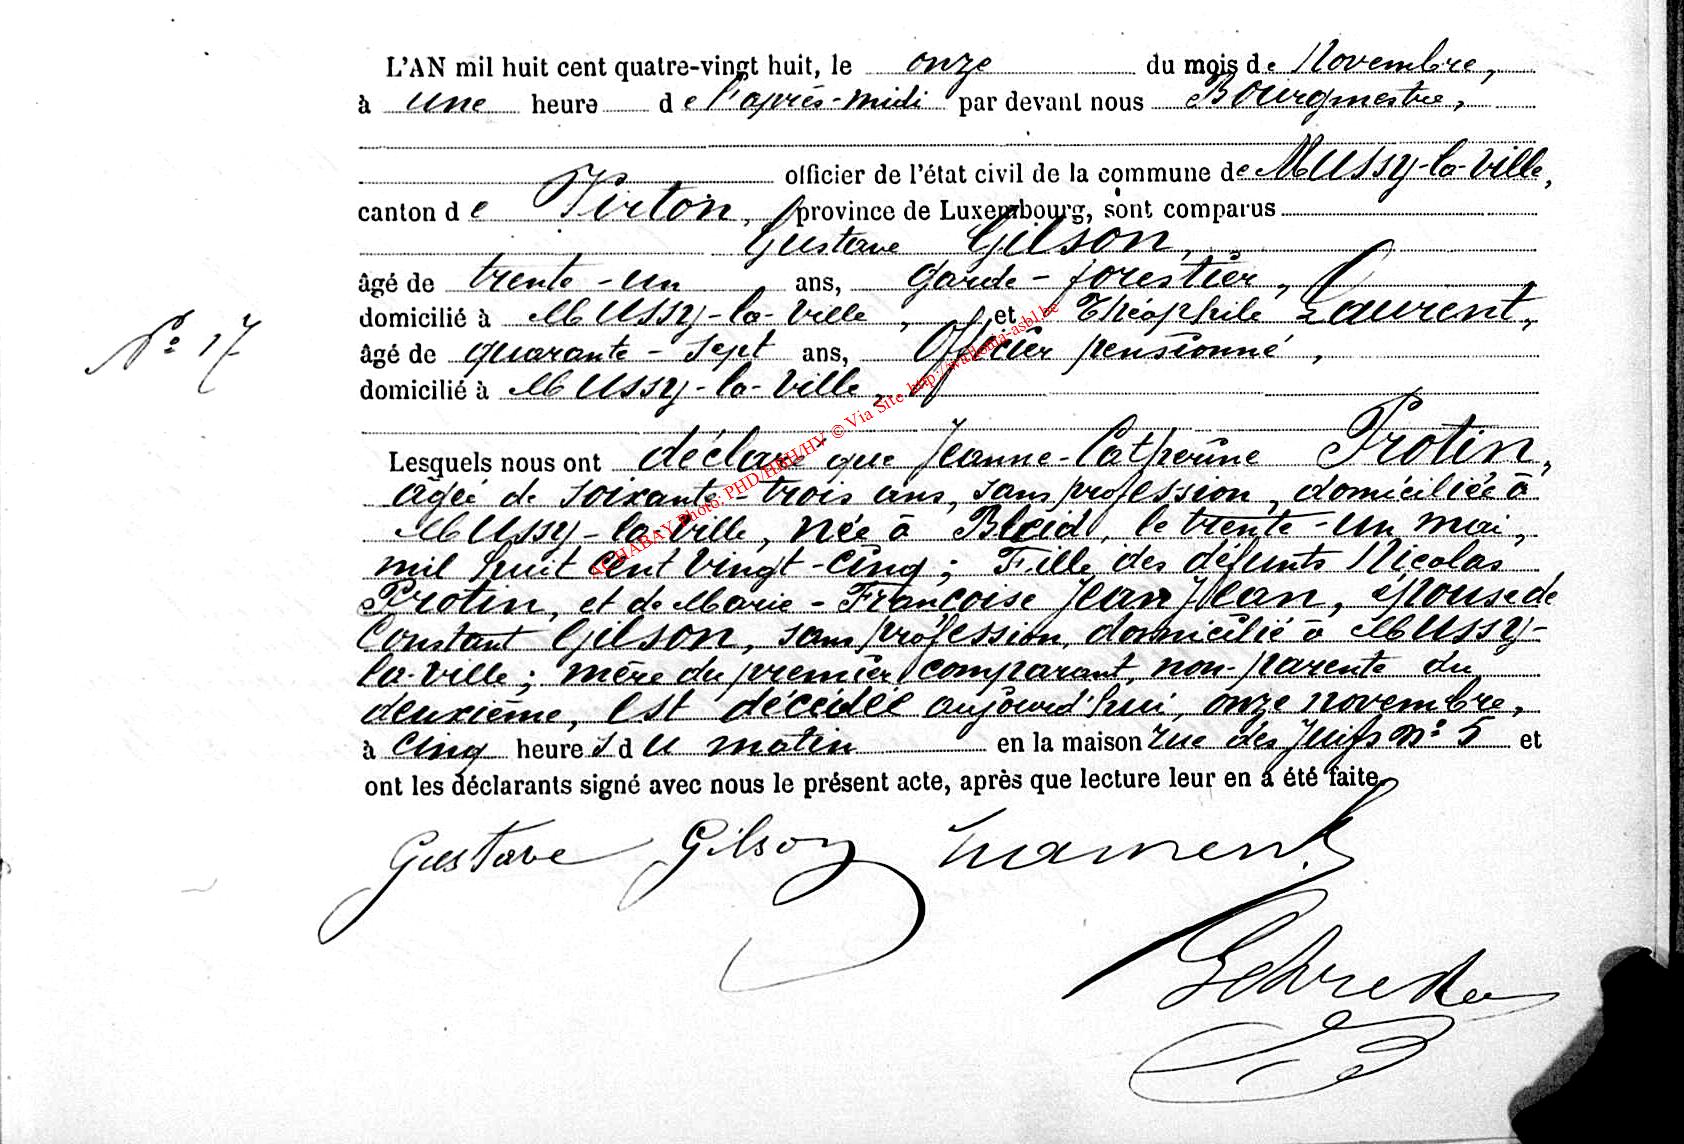 L'AN mil huit cent quatre-vingt huit, le onze du mois de Novembre,
à une heure de l'après-midi par devant nous Bourgmestre,
officier de l'état civil de la commune de Mussy-la-Ville,
canton de Virton, province de Luxembourg, sont comparus
Gustave Gilson,
âgé de trente-un ans, garde-forestier,
domicilié à Mussy-la-Ville, et Théophile Laurent,
N° 17
âgé de quarante-sept ans, Officier pensionné,
domicilié à Mussy-la-Ville,
Lesquels nous ont déclaré que Jeanne-Catherine Protin,
âgée de soixante-trois ans, sans profession, domiciliée à
Mussy-la-Ville, née à Bleid, le trente-un mai,
mil huit cent vingt-cinq; Fille des défunts Nicolas
Protin, et de Marie-Françoise JeanJean, épouse de
Constant Gilson, sans profession, domicilié à Mussy-
la-Ville; mère du premier comparant, non-parente du
deuxième, est décédée aujourd'hui, onze novembre,
à cinq heures du matin en la maison rue des Juifs n° 5 et
ont les déclarants signé avec nous le présent acte, après que lecture leur en a été faite.
Gustave Gilson
AGHABAY Photo: PHD/HRH/HV © Via Site http://wallonia-asbl.be